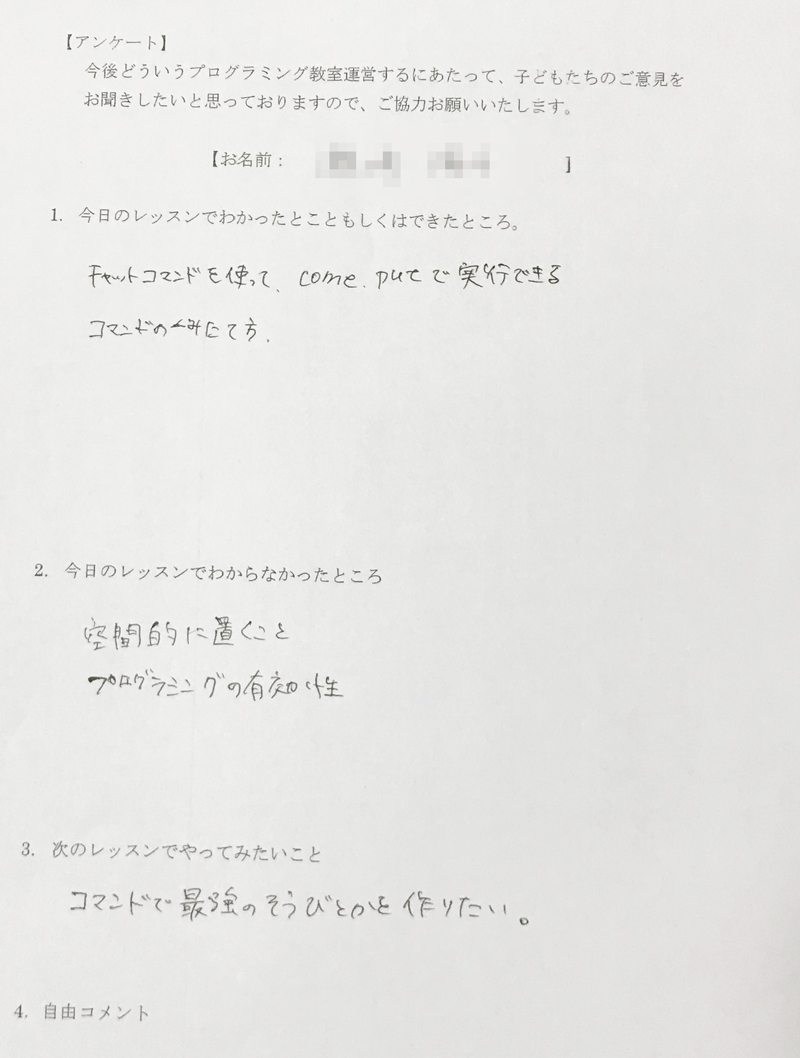 【アンケート】
今後どういうプログラミング教室運営するにあたって、子どもたちのご意見を
お聞きしたいと思っておりますので、ご協力お願いいたします。
【お名前： 】
1. 今日のレッスンでわかったとこともしくはできたところ。
チャットコマンドを使って、come、putで実行できる
コマンドのくみたて方.
2. 今日のレッスンでわからなかったところ
空間的に置くこと
プログラミングの有効性
3. 次のレッスンでやってみたいこと
コマンドで最強のそうびとかを作りたい。
4. 自由コメント